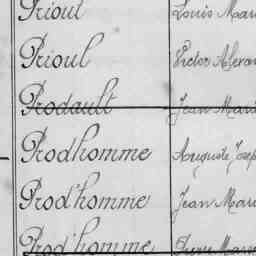 Prioul Louis Mari
Prioul Victor Alexan
Prodault Jean Mari
Prodhomme Auguste Josep
Prod'homme Jean Mari
Prod'homme Pierre Mari